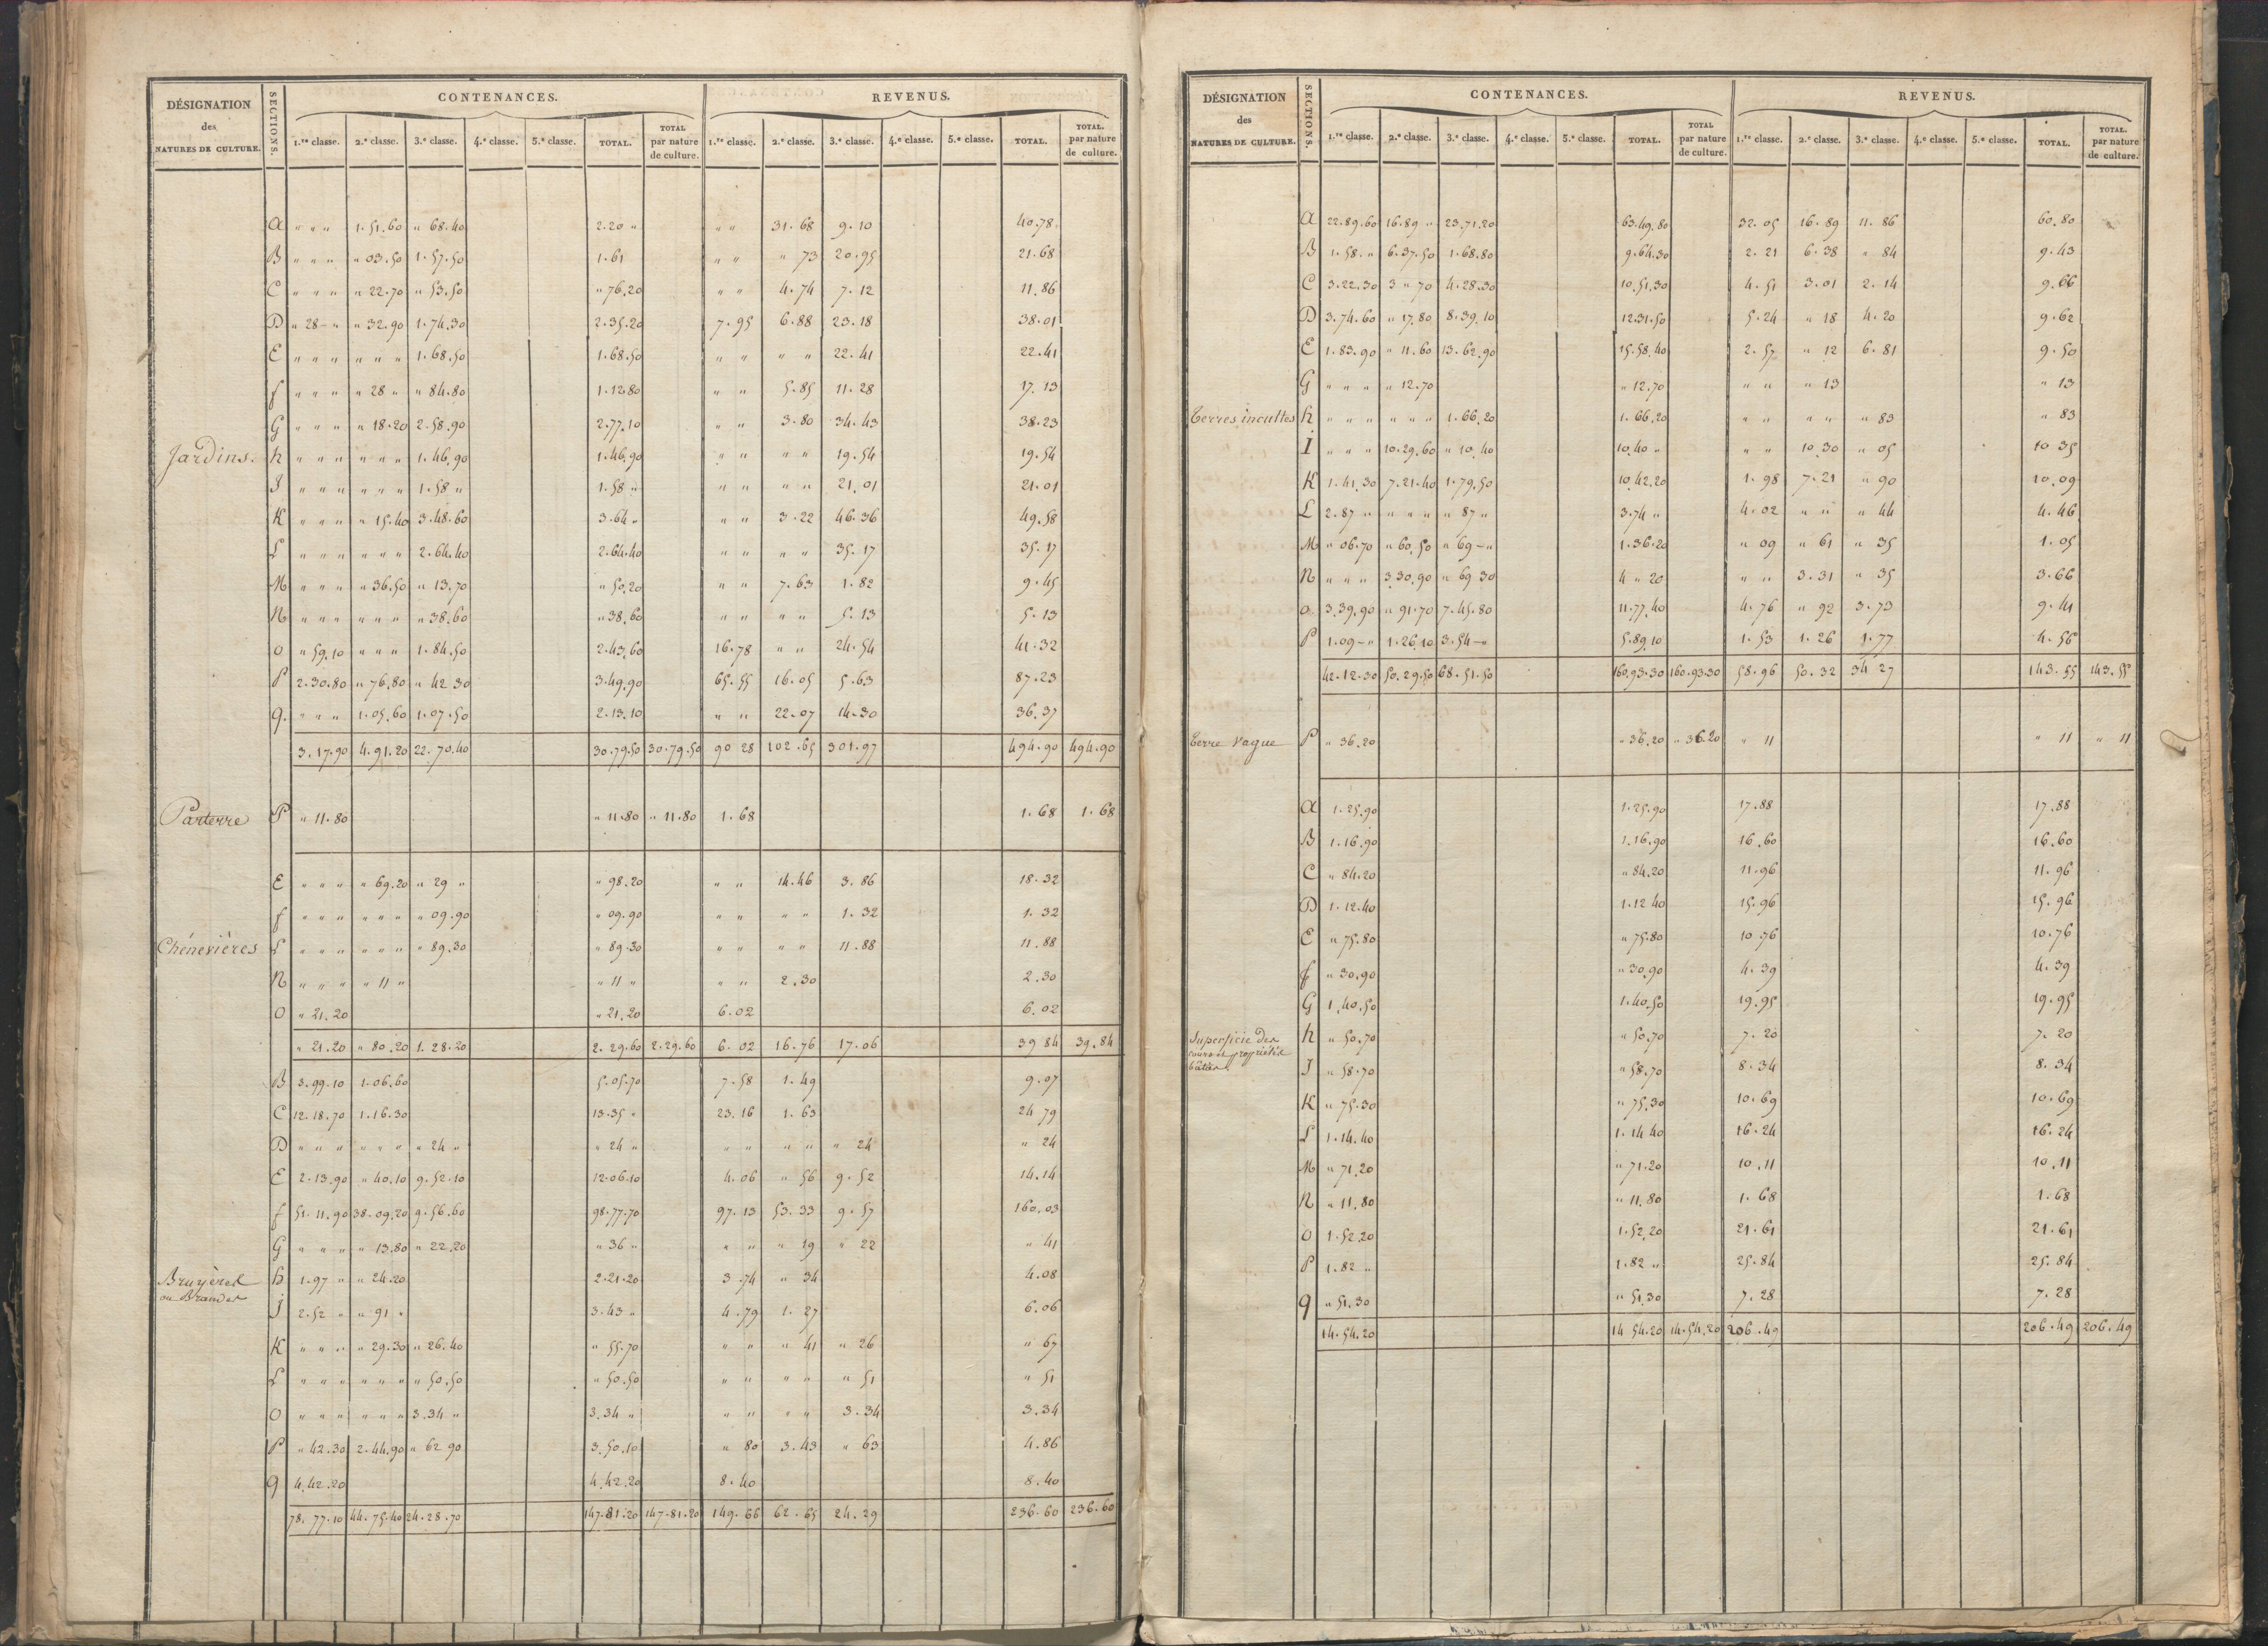 DÉSIGNATION
des
NATURES DE CULTURE.
SECTIONS.
CONTENANCES.
REVENUS.
1.re classe. 2.e classe. 3.e classe. 4.e classe. 5.e classe. TOTAL. TOTAL par nature de culture. 1.re classe. 2.e classe. 3.e classe. 4.e classe. 5.e classe. TOTAL. TOTAL. par nature de culture.
A " " " 1.51.60 " 68.40 2.20 " " " 31.68 9.10 40.78
B " " " " 03.50 1.57.50 1.61 " " " 73 20.95 21.68
C " " " " 22.70 " 53.50 " 76.20 " " 4.74 7.12 11.86
D " 28 - " " 32.90 1.74.30 2.35.20 7.95 6.88 23.18 38.01
E " " " " " " 1.68.50 1.68.50 " " " " 22.41 22.41
f " " " " 28 " " 84.80 1.12.80 " " 5.85 11.28 17.13
G " " " " 18.20 2.58.90 2.77.10 " " 3.80 34.43 38.23
Jardins. h " " " " " " 1.46.90 1.46.90 " " " " 19.54 19.54
J " " " " " " 1.58 " 1.58 " " " " " 21.01 21.01
K " " " " 15.40 3.48.60 3.64 " " " 3.22 46.36 49.58
L " " " " " " 2.64.40 2.64.40 " " " " 35.17 35.17
M " " " " 36.50 " 13.70 " 50.20 " " 7.63 1.82 9.45
N " " " " " " " 38.60 " 38.60 " " " " 5.13 5.13
O " 59.10 " " " 1.84.50 2.43.60 16.78 " " 24.54 41.32
P 2.30.80 " 76.80 " 42.30 3.49.90 65.55 16.05 5.63 87.23
q. " " " 1.05.60 1.07.50 2.13.10 " " 22.07 14.30 36.37
3.17.90 4.91.20 22.70.40 30.79.50 30.79.50 90 28 102.65 301.97 494.90 494.90
Parterre P " 11.80 " 11.80 " 11.80 1.68 1.68 1.68
E " " " " 69.20 " 29 " " 98.20 " " 14.46 3.86 18.32
f " " " " " " " 09.90 " 09.90 " " " " 1.32 1.32
Chénevières L " " " " " " " 89.30 " 89.30 " " " " 11.88 11.88
N " " " " 11 " " 11 " " " 2.30 2.30
O " 21.20 " 21.20 6.02 6.02
" 21.20 " 80.20 1.28.20 2.29.60 2.29.60 6.02 16.76 17.06 39 84 39.84
B 3.99.10 1.06.60 5.05.70 7.58 1.49 9.07
C 12.18.70 1.16.30 13.35 " 23.16 1.63 24 79
D " " " " " " " 24 " " 24 " " " " " " 24 " 24
E 2.13.90 " 40.10 9.52.10 12.06.10 4.06 " 56 9.52 14.14
f 51.11.90 38.09.20 9.56.60 98.77.70 97.13 53.33 9.57 160.03
G " " " " 13.80 " 22.20 " 36 " " " " 19 " 22 " 41
Bruyères h 1.97 " " 24.20 2.21.20 3.74 " 34 4.08
ou Brandes
J 2.52 " " 91 " 3.43 " 4.79 1.27 6.06
K " " " " 29.30 " 26.40 " 55.70 " " " 41 " 26 " 67
L " " " " " " " 50.50 " 50.50 " " " " " 51 " 51
O " " " " " " 3.34 " 3.34 " " " " " 3.34 3.34
P " 42.30 2.44.90 " 62 90 3.50.10 " 80 3.43 " 63 4.86
q 4.42.20 4.42.20 8.40 8.40
78.77.10 44.75.40 24.28.70 147.81.20 147.81.20 149.66 62.65 24.29 236.60 236.60
DÉSIGNATION
des
NATURES DE CULTURE.
SECTIONS.
CONTENANCES.
REVENUS.
1.re classe. 2.e classe. 3.e classe. 4.e classe. 5.e classe. TOTAL. TOTAL par nature de culture. 1.re classe. 2.e classe. 3.e classe. 4.e classe. 5.e classe. TOTAL. TOTAL. par nature de culture.
A 22.89.60 16.89 " 23.71.20 63.49.80 32.05 16.89 11.86 60.80
B 1.58 " 6.37.50 1.68.80 9.64.30 2.21 6.38 " 84 9.43
C 3.22.30 3 " 70 4.28.30 10.51.30 4.51 3.01 2.14 9.66
D 3.74.60 " 17.80 8.39.10 12.31.50 5.24 " 18 4.20 9.62
E 1.83.90 " 11.60 13.62.90 15.58.40 2.57 " 12 6.81 9.50
G " " " " 12.70 " 12.70 " " " 13 " 13
Terres incultes h " " " " " " 1.66.20 1.66.20 " " " " " 83 " 83
I " " " 10.29.60 " 10.40 10.40 " " " 10.30 " 05 10 35
K 1.41.30 7.21.40 1.79.50 10.42.20 1.98 7.21 " 90 10.09
L 2.87 " " " " " 87 " 3.74 " 4.02 " " " 44 4.46
M " 06.70 " 60.50 " 69 - " 1.36.20 " 09 " 61 " 35 1.05
N " " " 3.30.90 " 69 30 4 " 20 " " 3.31 " 35 3.66
o. 3.39.90 " 91.70 7.45.80 11.77.40 4.76 " 92 3.73 9.41
P 1.09 - " 1.26.10 3.54 - " 5.89.10 1.53 1.26 1.77 4.56
42.12.30 50.29.50 68.51.50 160.93.30 160.93.30 58.96 50.32 34 27 143.55 143.55
Terre vague P " 36.20 " 36.20 " 36.20 " 11 " 11 " 11
A 1.25.90 1.25.90 17.88 17.88
B 1.16.90 1.16.90 16.60 16.60
C " 84.20 " 84.20 11.96 11.96
D 1.12.40 1.12 40 15.96 15.96
E " 75.80 " 75.80 10.76 10.76
f " 30.90 " 30.90 4.39 4.39
G 1.40.50 1.40.50 19.95 19.95
Superficie des h " 50.70 " 50.70 7.20 7.20
cours et propriétés
bâties J " 58.70 " 58.70 8.34 8.34
K " 75.30 " 75.30 10.69 10.69
L 1.14.40 1.14 40 16.24 16.24
M " 71.20 " 71.20 10.11 10.11
N " 11.80 " 11.80 1.68 1.68
O 1.52.20 1.52.20 21.61 21.61
P 1.82 " 1.82 " 25.84 25.84
q " 51.30 " 51.30 7.28 7.28
14.54.20 14 54.20 14.54.20 206.49 206.49 206.49